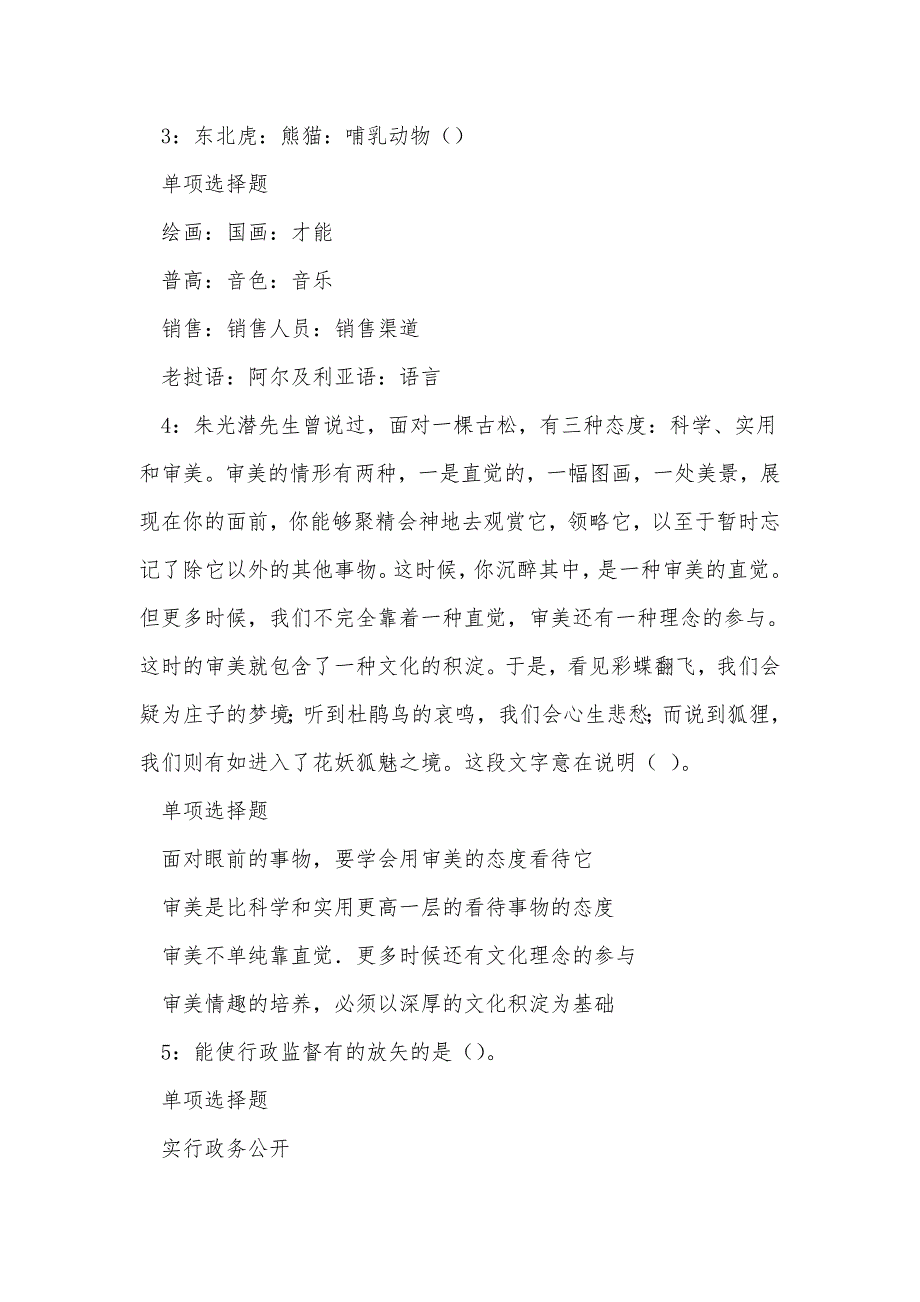 3：东北虎：熊猫：哺乳动物（）
单项选择题
绘画：国画：才能
普高：音色：音乐
销售：销售人员：销售渠道
老挝语：阿尔及利亚语：语言
4：朱光潜先生曾说过，面对一棵古松，有三种态度：科学、实用
和审美。审美的情形有两种，一是直觉的，一幅图画，一处美景，展
现在你的面前，你能够聚精会神地去观赏它，领略它，以至于暂时忘
记了除它以外的其他事物。这时候，你沉醉其中，是一种审美的直觉。
但更多时候，我们不完全靠着一种直觉，审美还有一种理念的参与。
这时的审美就包含了一种文化的积淀。于是，看见彩蝶翻飞，我们会
疑为庄子的梦境；听到杜鹃鸟的哀鸣，我们会心生悲愁；而说到狐狸，
我们则有如进入了花妖狐魅之境。这段文字意在说明（ ）。
单项选择题
面对眼前的事物，要学会用审美的态度看待它
审美是比科学和实用更高一层的看待事物的态度
审美不单纯靠直觉．更多时候还有文化理念的参与
审美情趣的培养，必须以深厚的文化积淀为基础
5：能使行政监督有的放矢的是（）。
单项选择题
实行政务公开